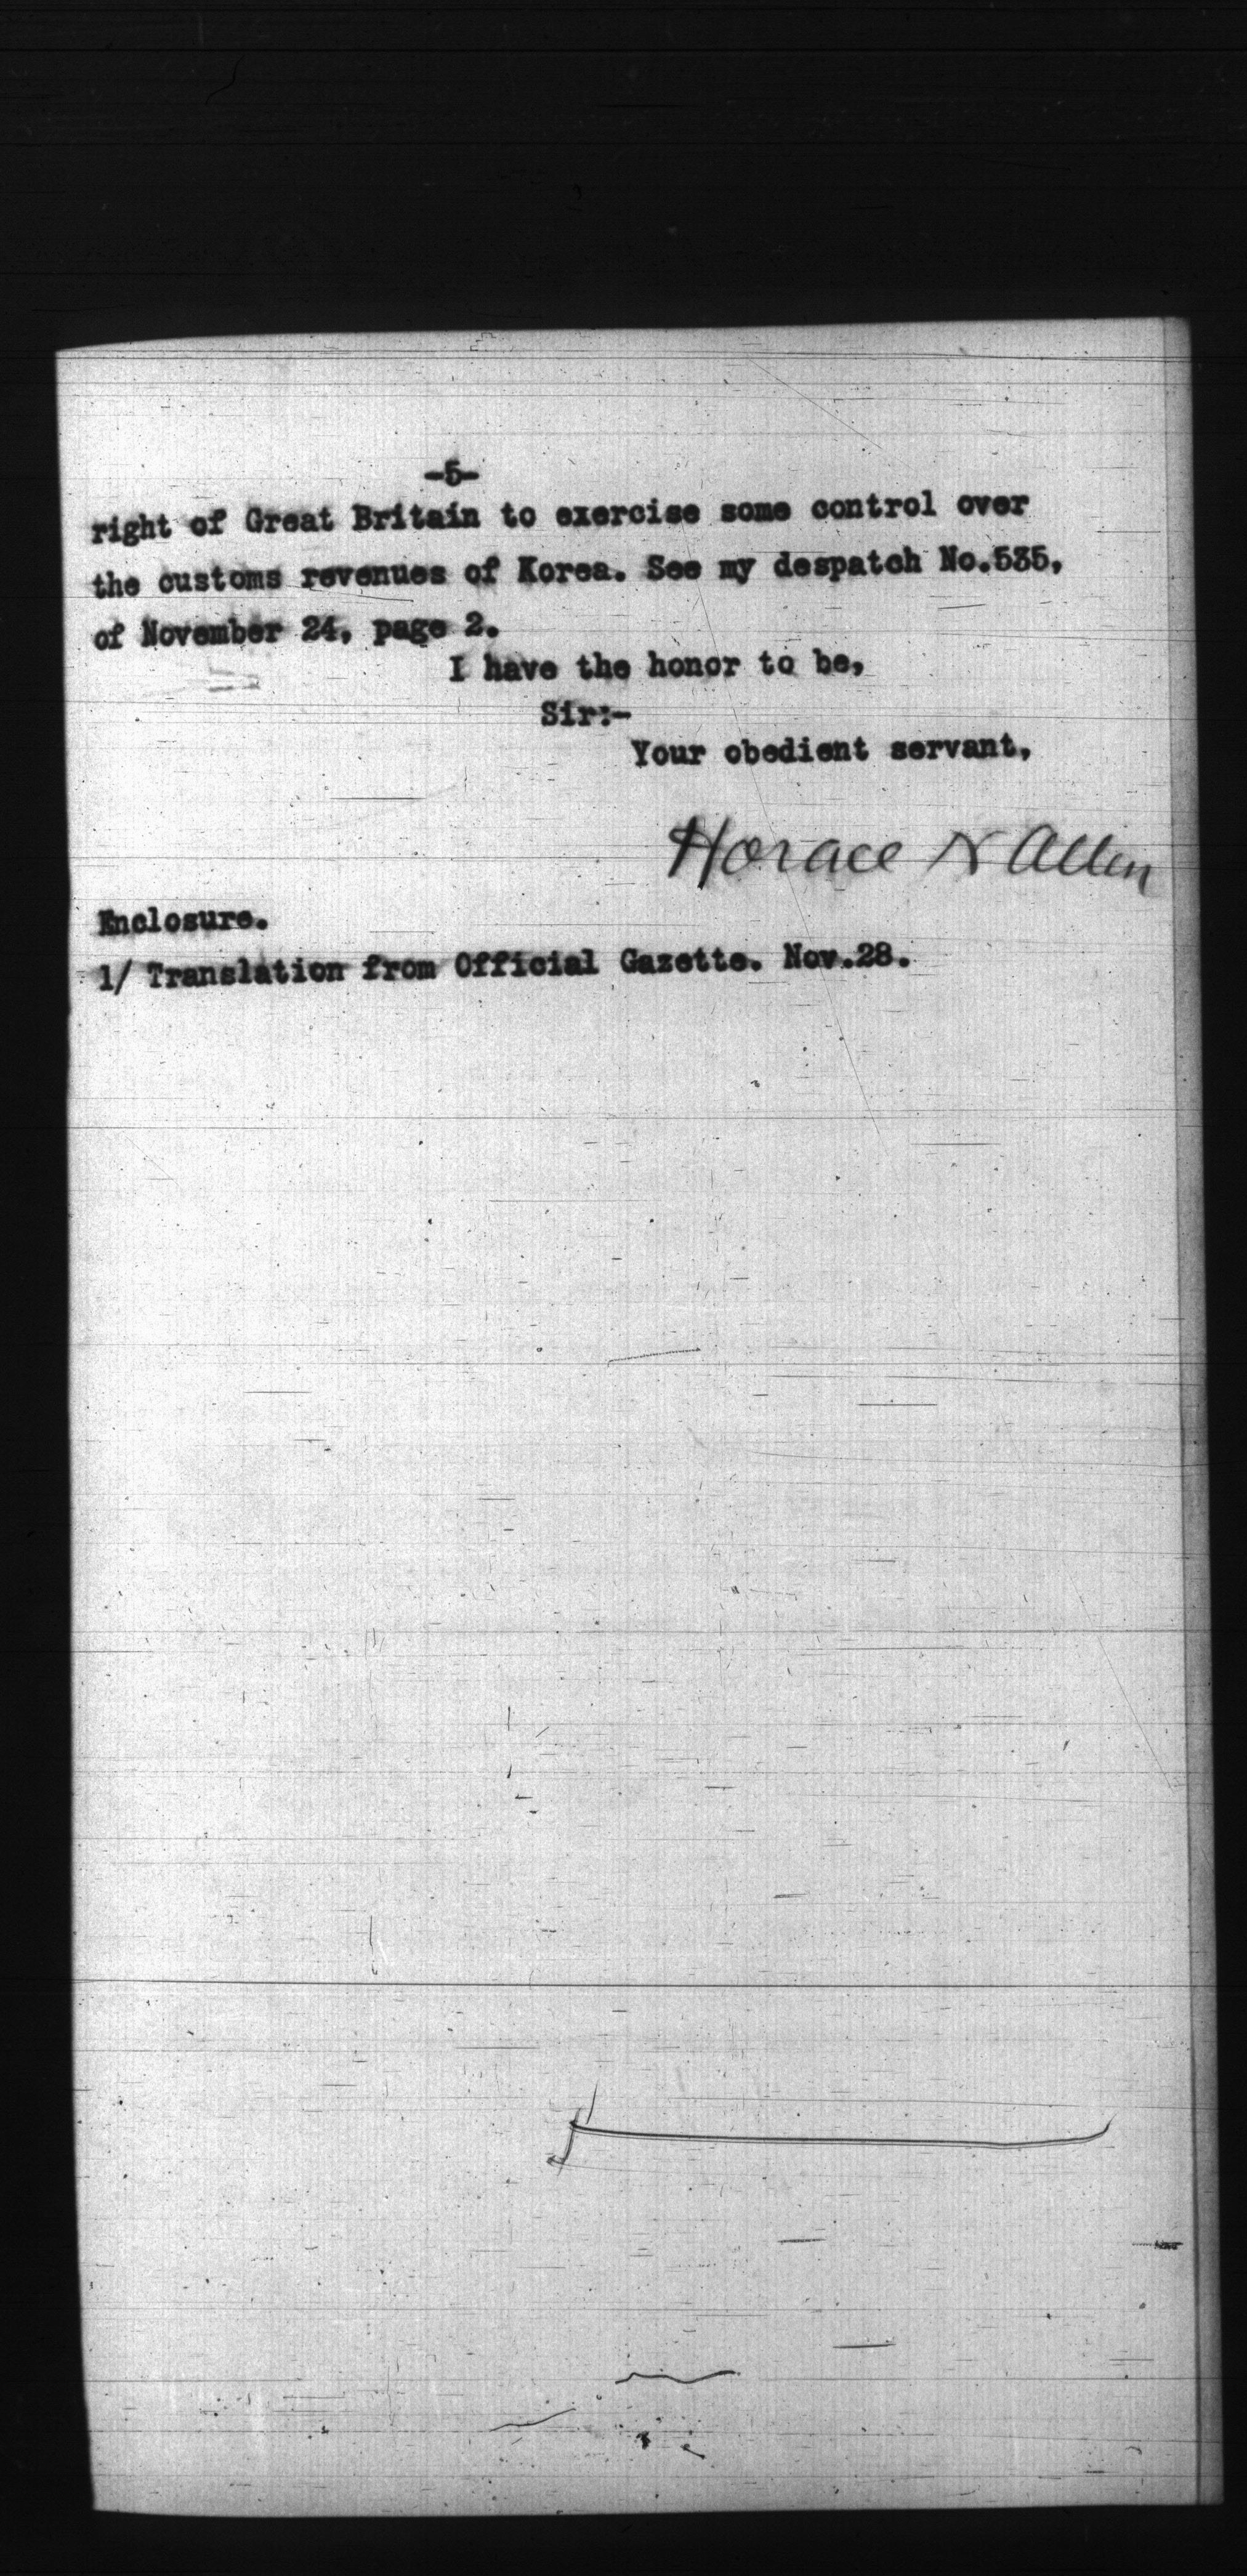 -5-
right of Great Britain to exercise some control over
the customs revenues of Korea. See my despatch No.535,
of November 24, page 2.
I have the honor to be,
Sir:-
Your obedient servant,
Horace N Allen
Enclosure.
1/ Translation from Official Gazette. Nov.28.